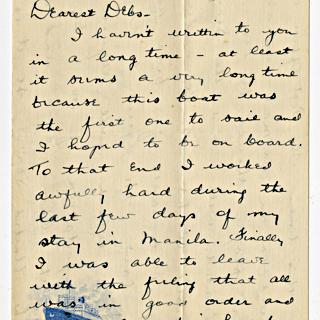 Dearest Debs-
I havn't written to you
in a long time - at least
it seems a very long time
because this boat was
the first one to sail and
I hoped to be on board.
To that end I worked
awfully hard during the
last few days of my
stay in Manila. Finally
I was able to leave
with the feeling that all
was in good order and